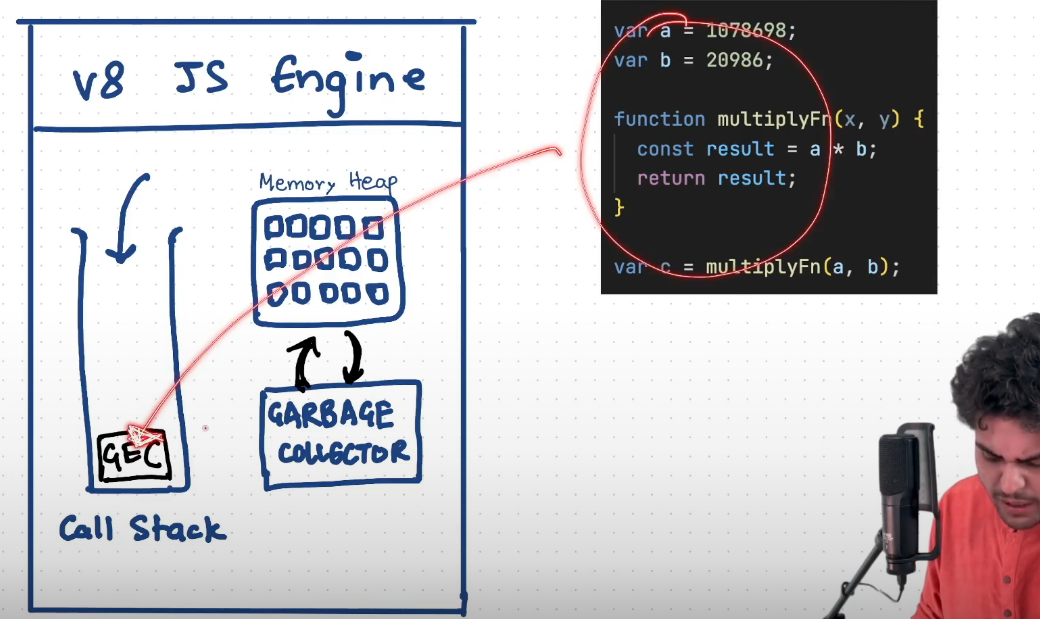 V8 JS Engine
Memory Heap
GARBAGE
COLLECTOR
GEC
Call Stack
var a = 1078698;
var b = 20986;
function multiplyFn(x, y) {
const result = a * b;
return result;
}
var c = multiplyFn(a, b);